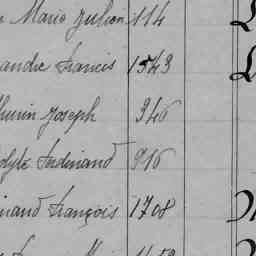 Marie Julien 114
andre Francis 1543
thurin Joseph 346
olyte Ferdinand 916
inand François 1708